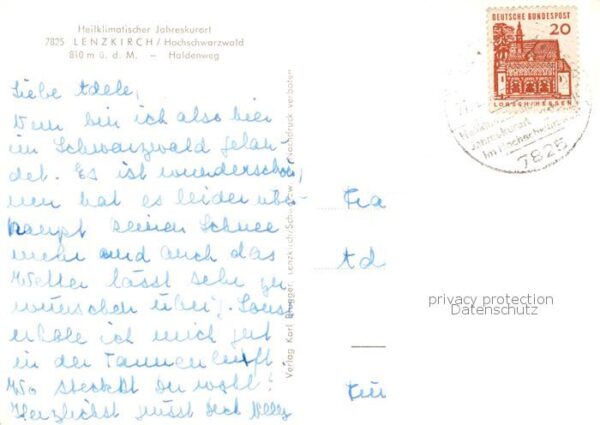 Heilklimatischer Jahreskurort
7825 LENZKIRCH / Hochschwarzwald
810 m ü. d. M. – Haldenweg
Liebe Adele,
bin ich also hier
im Schwarzwald gelan-
det. Es ist wunderschön,
nur hat es leider über-
haupt keinen Schnee
mehr und auch das
Wetter lässt sehr zu
wünschen übrig. Sonst
erhole ich mich gut
in der Tannenluft.
Wo steckst Du wohl?
Herzlichst grüsst Dich Willy
Verlag Karl Brugger, Lenzkirch/Schwarzw. Nachdruck verboten
DEUTSCHE BUNDESPOST
20
LORSCH/HESSEN
Jahreskurort
im Hochschwarzwald
7825
Fra
Ad
privacy protection
Datenschutz